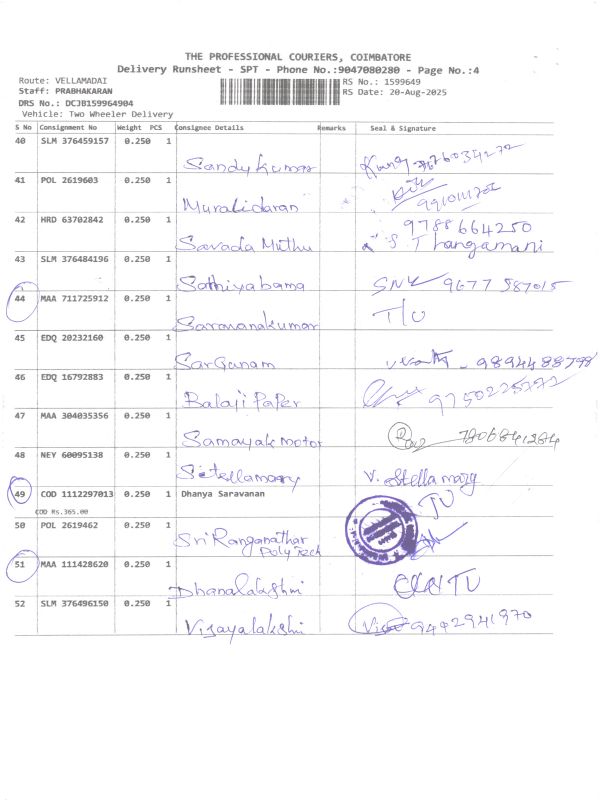 THE PROFESSIONAL COURIERS, COIMBATORE
Delivery Runsheet - SPT - Phone No.:9047080280 - Page No.:4
Route: VELLAMADAI RS No.: 1599649
Staff: PRABHAKARAN RS Date: 20-Aug-2025
DRS No.: DCJB159964904
Vehicle: Two Wheeler Delivery
S No Consignment No Weight PCS Consignee Details Remarks Seal & Signature
40 SLM 376459157 0.250 1
Sandy Kumar
41 POL 2619603 0.250 1
Muralidaran
42 HRD 63702842 0.250 1 9788664250
Savada Muthu S. Thangamani
43 SLM 376484196 0.250 1
Sathiyabama SNK 9677587015
44 MAA 711725912 0.250 1
Saravanakumar
45 EDQ 20232160 0.250 1
SarGanam 9894488798
46 EDQ 16792883 0.250 1
Balaji Paper
47 MAA 304035356 0.250 1
Samayak Motor
48 NEY 60095138 0.250 1
V. Stella mary
49 COD 1112297013 0.250 1 Dhanya Saravanan
COD Rs.365.00
50 POL 2619462 0.250 1
Sri Ranganathar
Poly Tech
51 MAA 111428620 0.250 1
Dhanalakshmi
52 SLM 376496150 0.250 1
Vijayalakshmi 9442941970